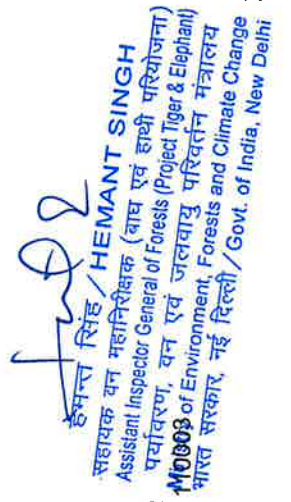 हेमन्त सिंह / HEMANT SINGH
सहायक वन महानिरीक्षक (बाघ एवं हाथी परियोजना)
Assistant Inspector General of Forests (Project Tiger & Elephant)
पर्यावरण, वन एवं जलवायु परिवर्तन मंत्रालय
of Environment, Forests and Climate Change
भारत सरकार, नई दिल्ली / Govt. of India, New Delhi